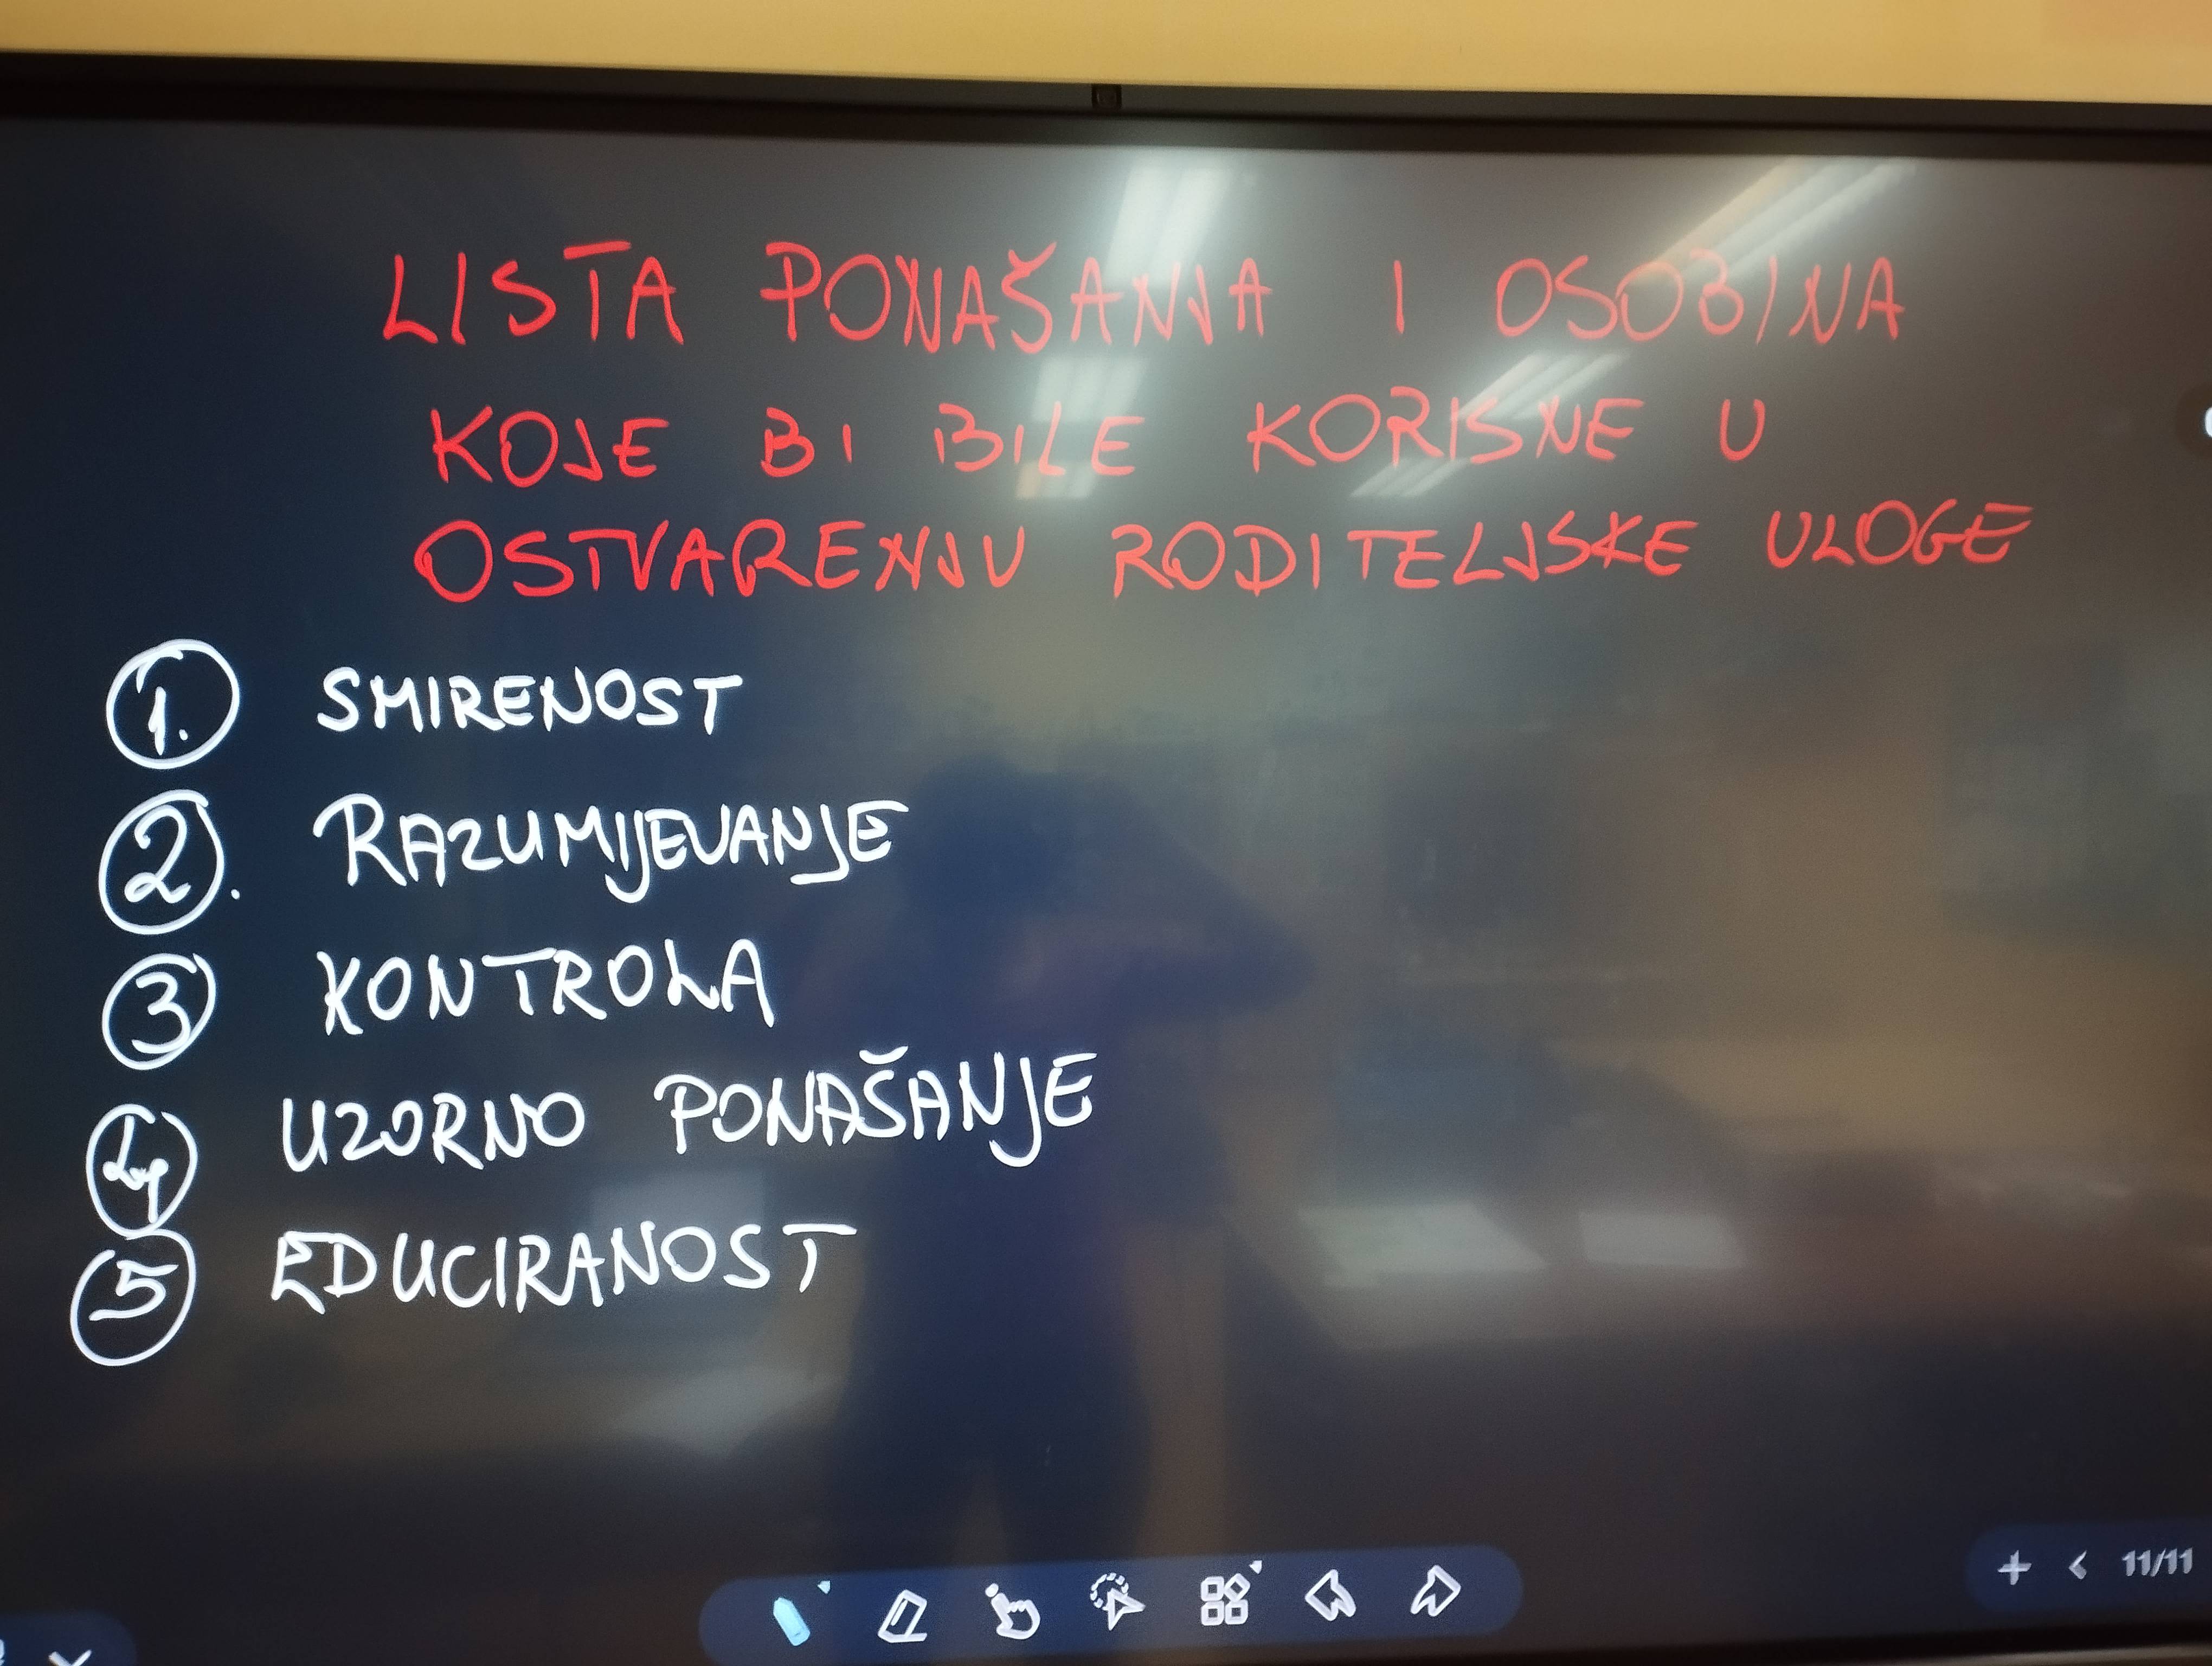 LISTA PONAŠANJA I OSOBINA
KOJE BI BILE KORISNE U
OSTVARENJU RODITELJSKE ULOGE
1. SMIRENOST
2. RAZUMIJEVANJE
3 KONTROLA
4 UZORNO PONAŠANJE
5 EDUCIRANOST
11/11